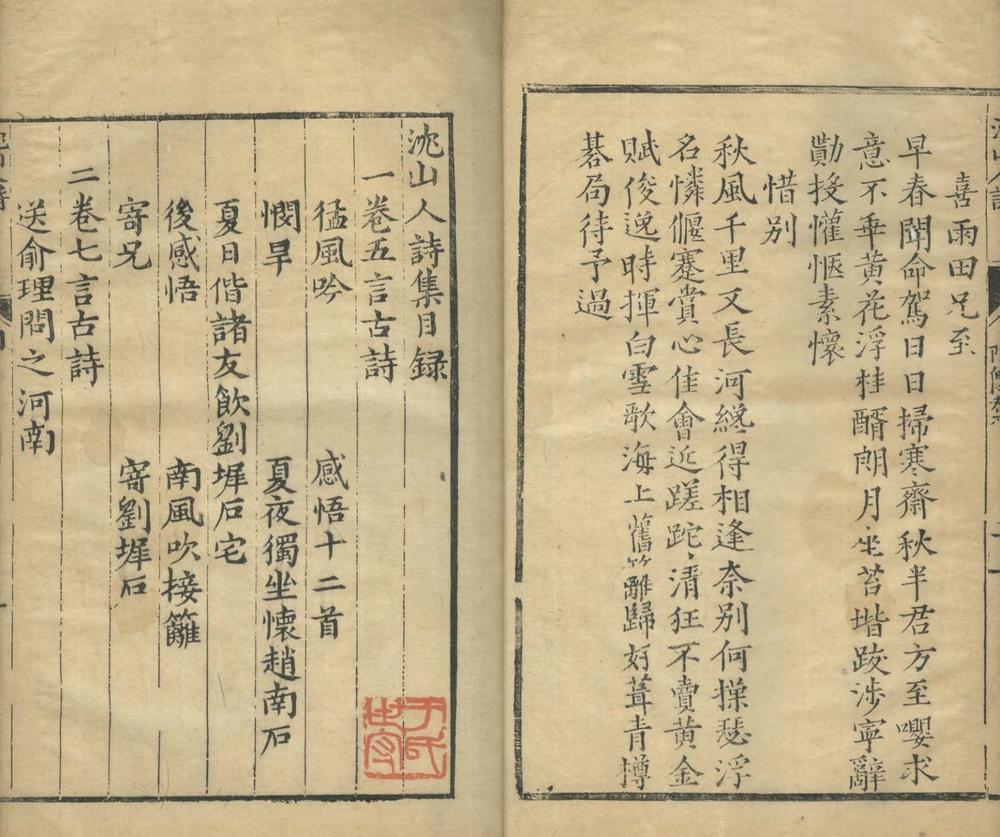 喜雨田兄至
早春聞命駕日日掃寒齋秋半君方至嚶求
意不乖黄花浮桂醑朗月坐苔堦跋涉寧辭
勩投懽愜素懷
惜别
秋風千里又長河纔得相逢奈别何操瑟浮
名憐偃蹇賞心佳會近蹉跎清狂不賣黄金
賦俊逸時揮白雪歌海上舊籬歸好葺青樽
碁局待予過
洮山人詩集目録
一卷五言古詩
猛風吟 感悟十二首
憫旱 夏夜獨坐懷趙南石
夏日偕諸友飲劉墀石宅
後感悟 南風吹接䍦
寄兄 寄劉墀石
二卷七言古詩
送俞理問之河南